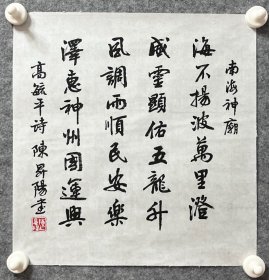 南海神廟
海不揚波萬里澄
威靈顯佑五龍升
風調雨順民安樂
澤惠神州國運興
高毓平詩 陳昇陽書